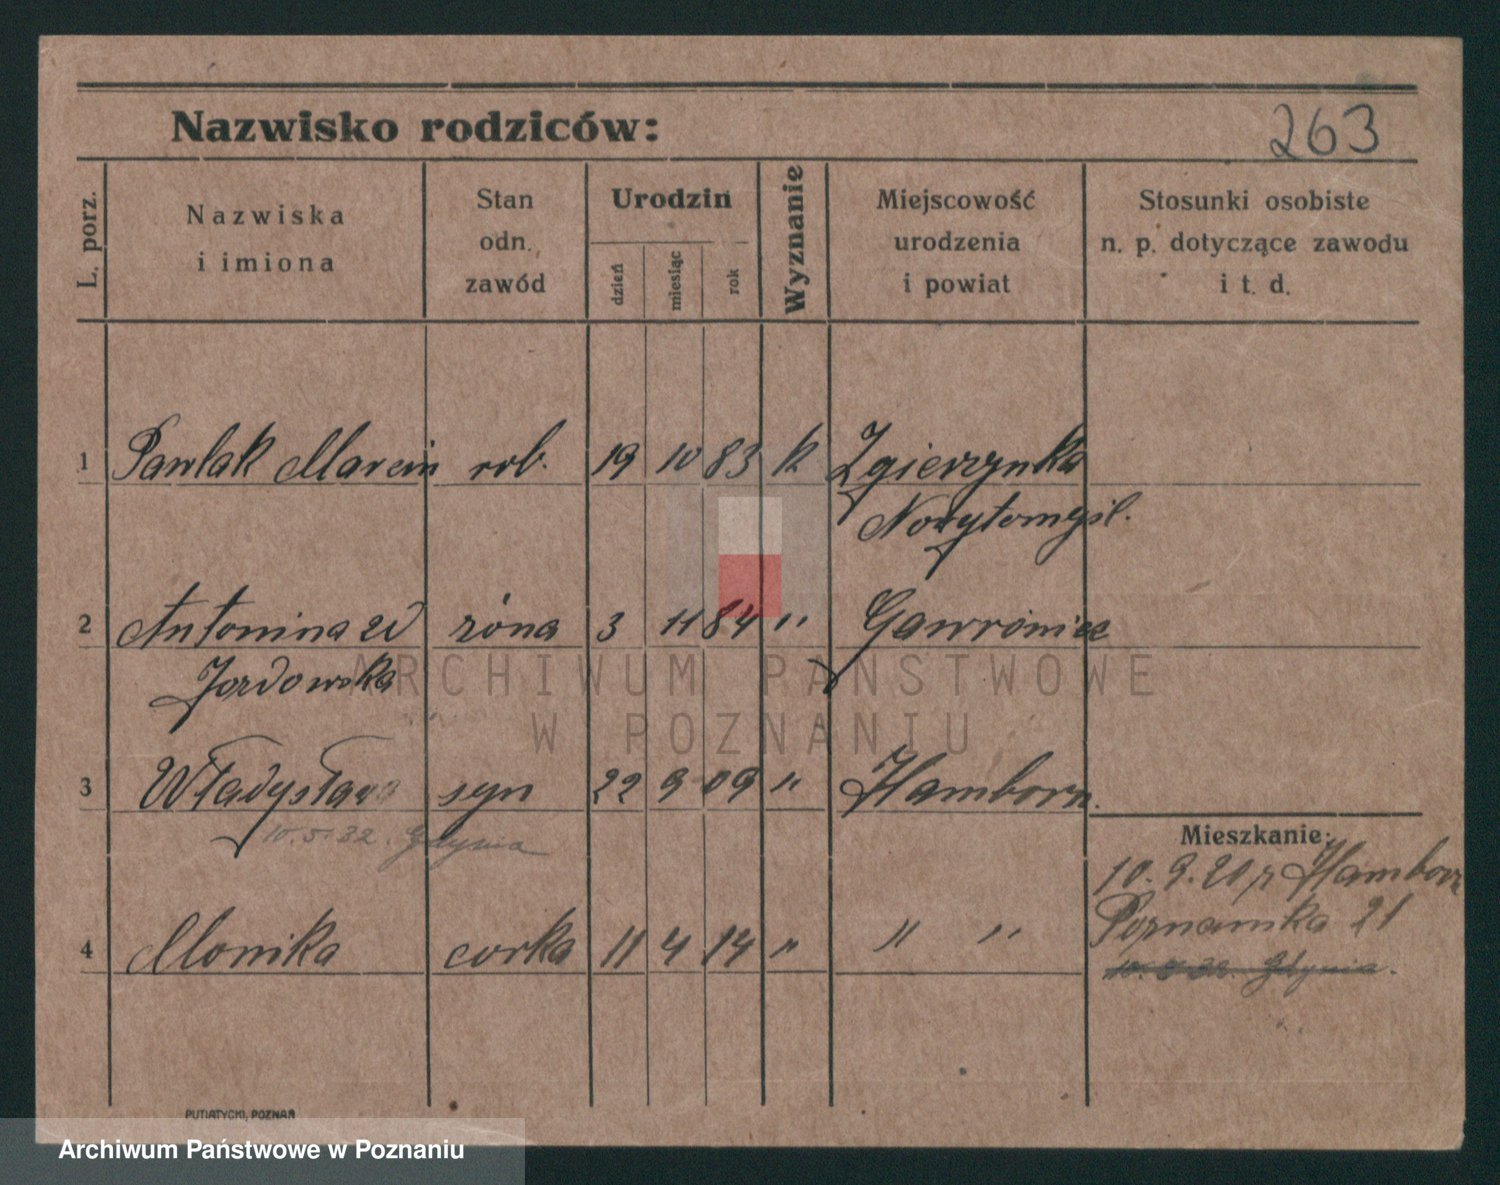 Nazwisko rodziców:
263
L. porz.
Nazwiska
i imiona
Stan
odn.
zawód
Urodzin
dzień
miesiąc
rok
Wyznanie
Miejscowość
urodzenia
i powiat
Stosunki osobiste
n. p. dotyczące zawodu
i t. d.
1 Pawlak Marcin rob. 19 10 83 k Zgierzynka
Nowytomyśl.
2 Antonina zd żona 3 11 84 " Gawroniec
Jordowska
ARCHIWUM PAŃSTWOWE
W POZNANIU
3 Władysław syn 22 9 09 " Hamborn.
10.5.32. Gdynia
Mieszkanie:
10.9.20 z Hamborn
Poznańska 21
4 Monika corka 11 4 14 " " "
10.5.32. Gdynia.
PUTIATYCKI, POZNAŃ
Archiwum Państwowe w Poznaniu